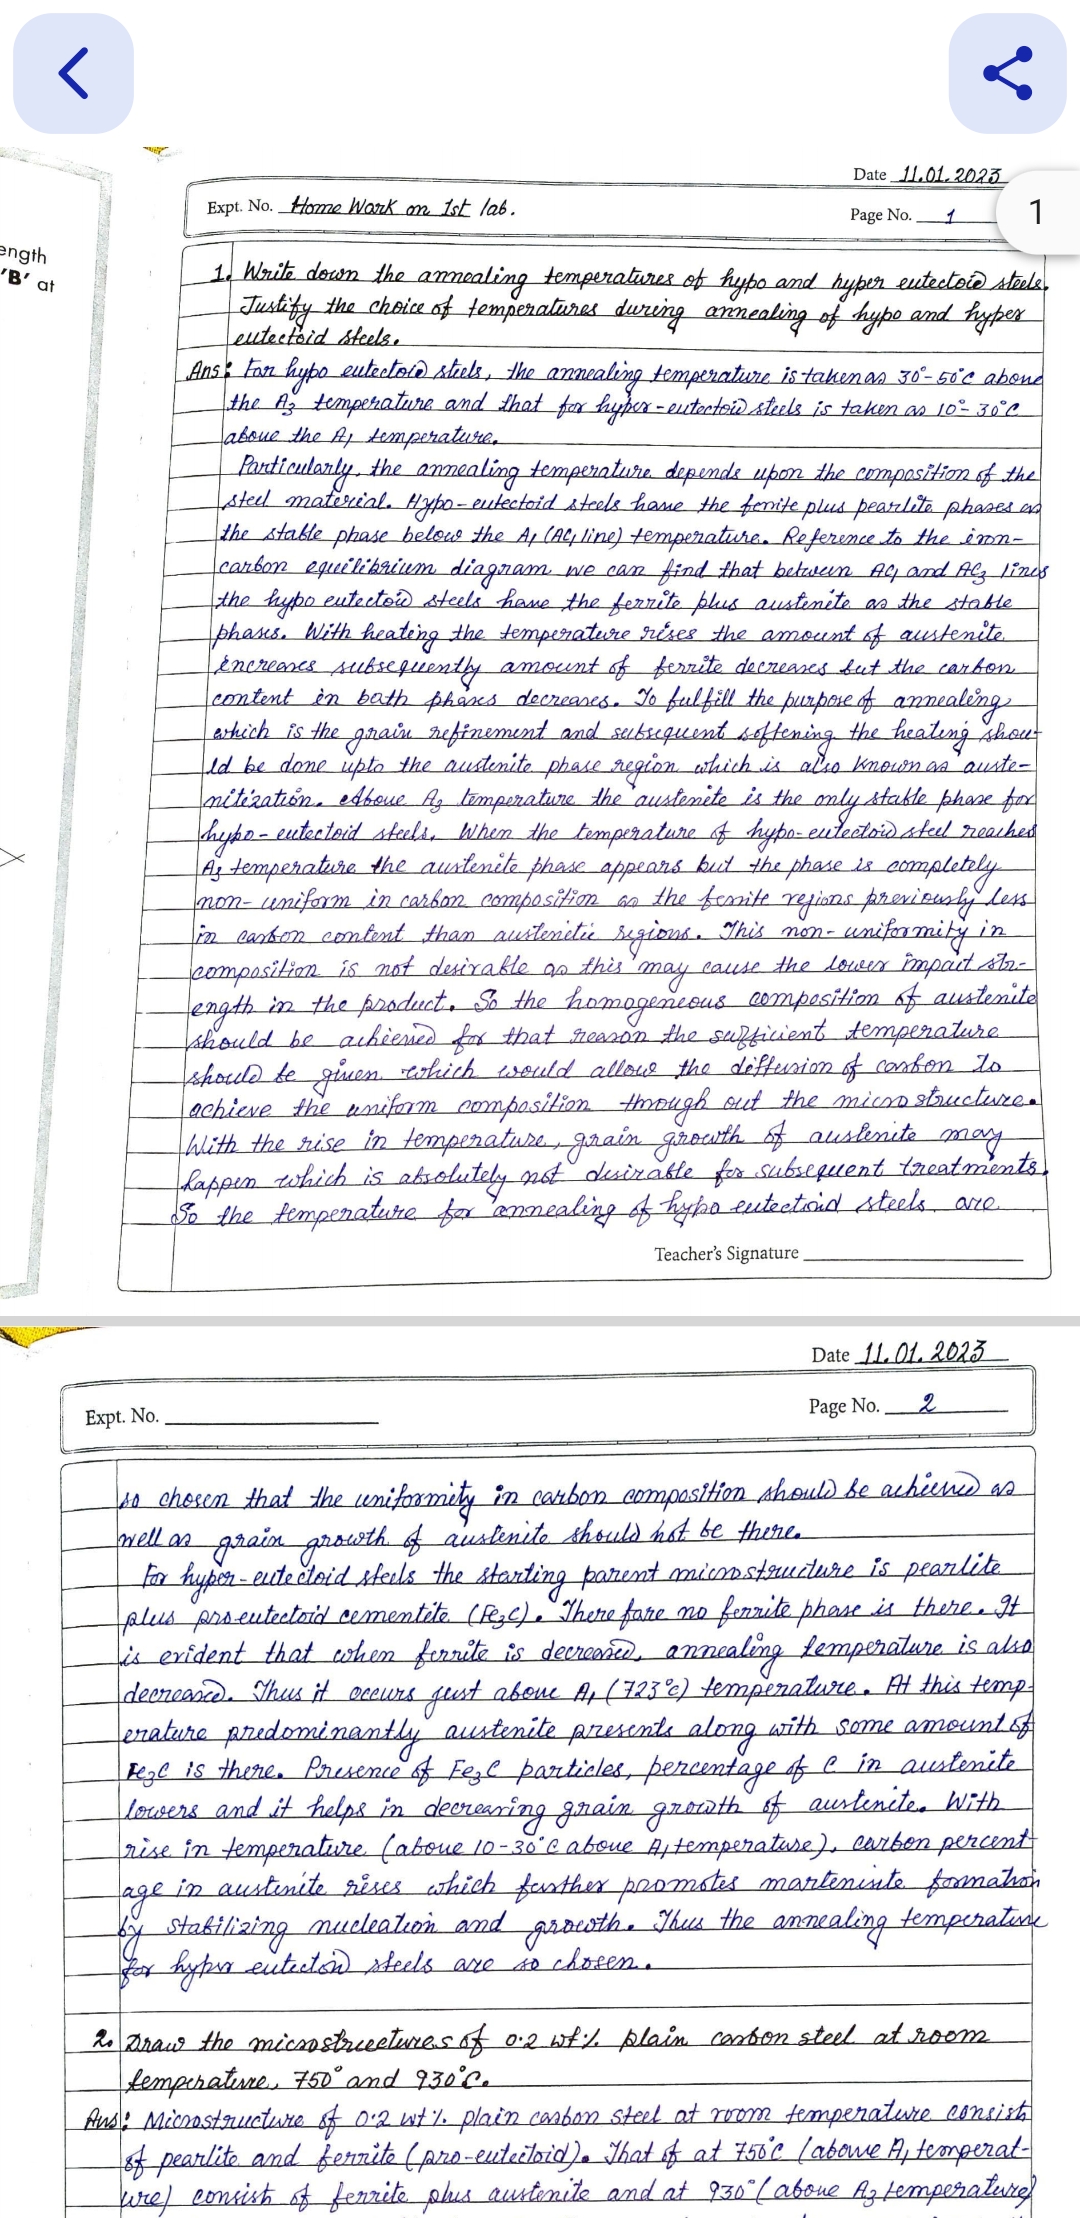 ength
'B' at
Date 11.01.2023
Expt. No. Home Work on 1st lab.
Page No. 1
1
1. Write down the annealing temperatures of hypo and hyper eutectoid steels.
Justify the choice of temperatures during annealing of hypo and hyper
eutectoid steels.
Ans: For hypo eutectoid steels, the annealing temperature is taken as 30°-50°C above
the A3 temperature and that for hyper-eutectoid steels is taken as 10°-30°C
above the A1 temperature.
Particularly, the annealing temperature depends upon the composition of the
steel material. Hypo-eutectoid steels have the ferrite plus pearlite phases as
the stable phase below the A1 (AC1 line) temperature. Reference to the iron-
carbon equilibrium diagram we can find that between AC1 and AC3 lines
the hypo eutectoid steels have the ferrite plus austenite as the stable
phases. With heating the temperature rises the amount of austenite
increases subsequently amount of ferrite decreases but the carbon
content in both phases decreases. To fulfill the purpose of annealing
which is the grain refinement and subsequent softening the heating shou-
ld be done upto the austenite phase region which is also known as auste-
nitization. Above A3 temperature the austenite is the only stable phase for
hypo-eutectoid steels. When the temperature of hypo-eutectoid steel reached
A3 temperature the austenite phase appears but the phase is completely
non-uniform in carbon composition as the ferrite regions previously less
in carbon content than austenitic regions. This non-uniformity in
composition is not desirable as this may cause the lower impact str-
ength in the product. So the homogeneous composition of austenite
should be achieved for that reason the sufficient temperature
should be given which would allow the diffusion of carbon to
achieve the uniform composition through out the microstructure.
With the rise in temperature, grain growth of austenite may
happen which is absolutely not desirable for subsequent treatments.
So the temperature for annealing of hypo eutectoid steels are
Teacher's Signature
Date 11.01.2023
Expt. No.
Page No. 2
so chosen that the uniformity in carbon composition should be achieved as
well as grain growth of austenite should not be there.
For hyper-eutectoid steels the starting parent microstructure is pearlite
plus proeutectoid cementite (Fe3C). Therefore no ferrite phase is there. It
is evident that when ferrite is decreased, annealing temperature is also
decreased. Thus it occurs just above A1 (723°C) temperature. At this temp-
erature predominantly austenite presents along with some amount of
Fe3C is there. Presence of Fe3C particles, percentage of C in austenite
lowers and it helps in decreasing grain growth of austenite. With
rise in temperature (above 10-30°C above A1 temperature), carbon percent-
age in austenite rises which further promotes martenisite formation
by stabilizing nucleation and growth. Thus the annealing temperature
for hyper eutectoid steels are so chosen.
2. Draw the microstructures of 0.2 wt% plain carbon steel at room
temperature, 750° and 930°C.
Ans: Microstructure of 0.2 wt% plain carbon steel at room temperature consists
of pearlite and ferrite (pro-eutectoid). That of at 750°C (above A1 temperat-
ure) consist of ferrite plus austenite and at 930° (above A3 temperature)